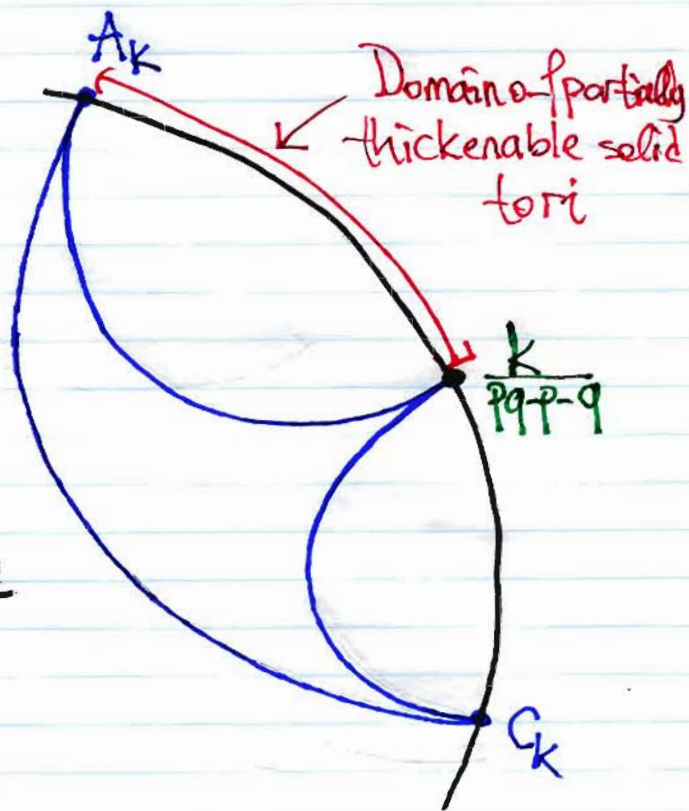 A_K
Domain of partially
thickenable solid
tori
k
pq-p-q
C_K